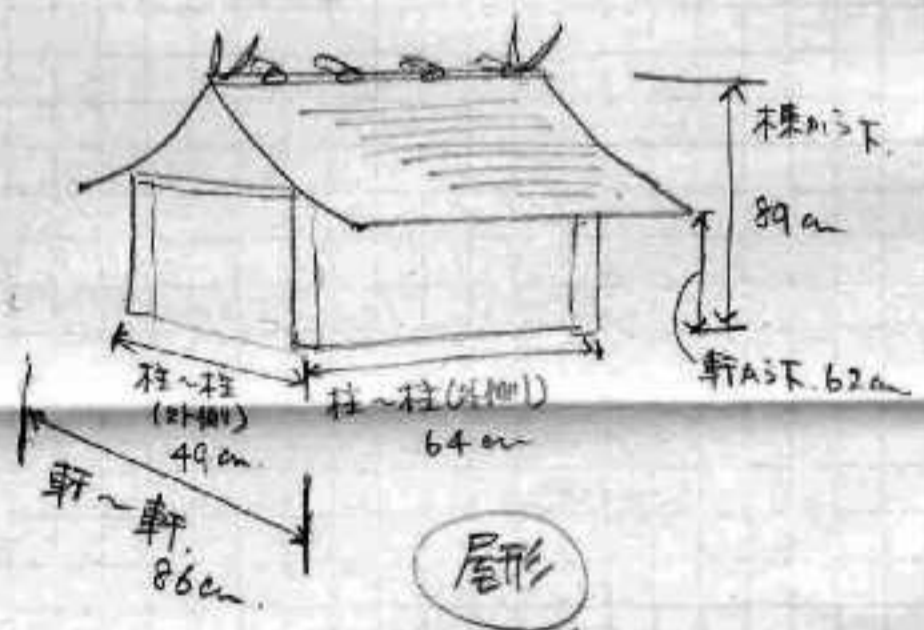 棟から下
89cm
軒から下 62cm
柱〜柱
(外側)
49cm.
柱〜柱(外側)
64cm
軒〜軒.
86cm.
尾形